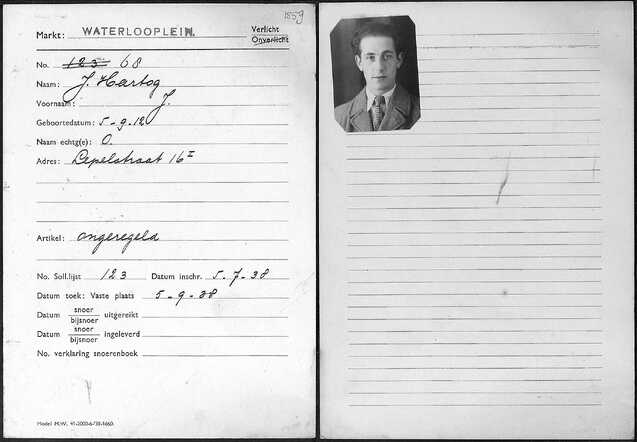 1559
Markt: WATERLOOPLEIN. Verlicht
Onverlicht
No. 123 68
Naam: J. Hartog
Voornaam: J.
Geboortedatum: 5-9-12
Naam echtg(e): O.
Adres: Lepelstraat 16 I
Artikel: ongeregeld
No. Soll.lijst 123 Datum inschr. 5-7-38
Datum toek: Vaste plaats 5-9-38
Datum snoer/bijsnoer uitgereikt
Datum snoer/bijsnoer ingeleverd
No. verklaring snoerenboek